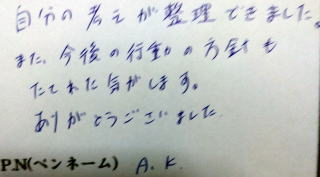 自分の考えが整理できました。
また、今後の行動の方針も
たてれた気がします。
ありがとうございました
P.N(ペンネーム) A.K.